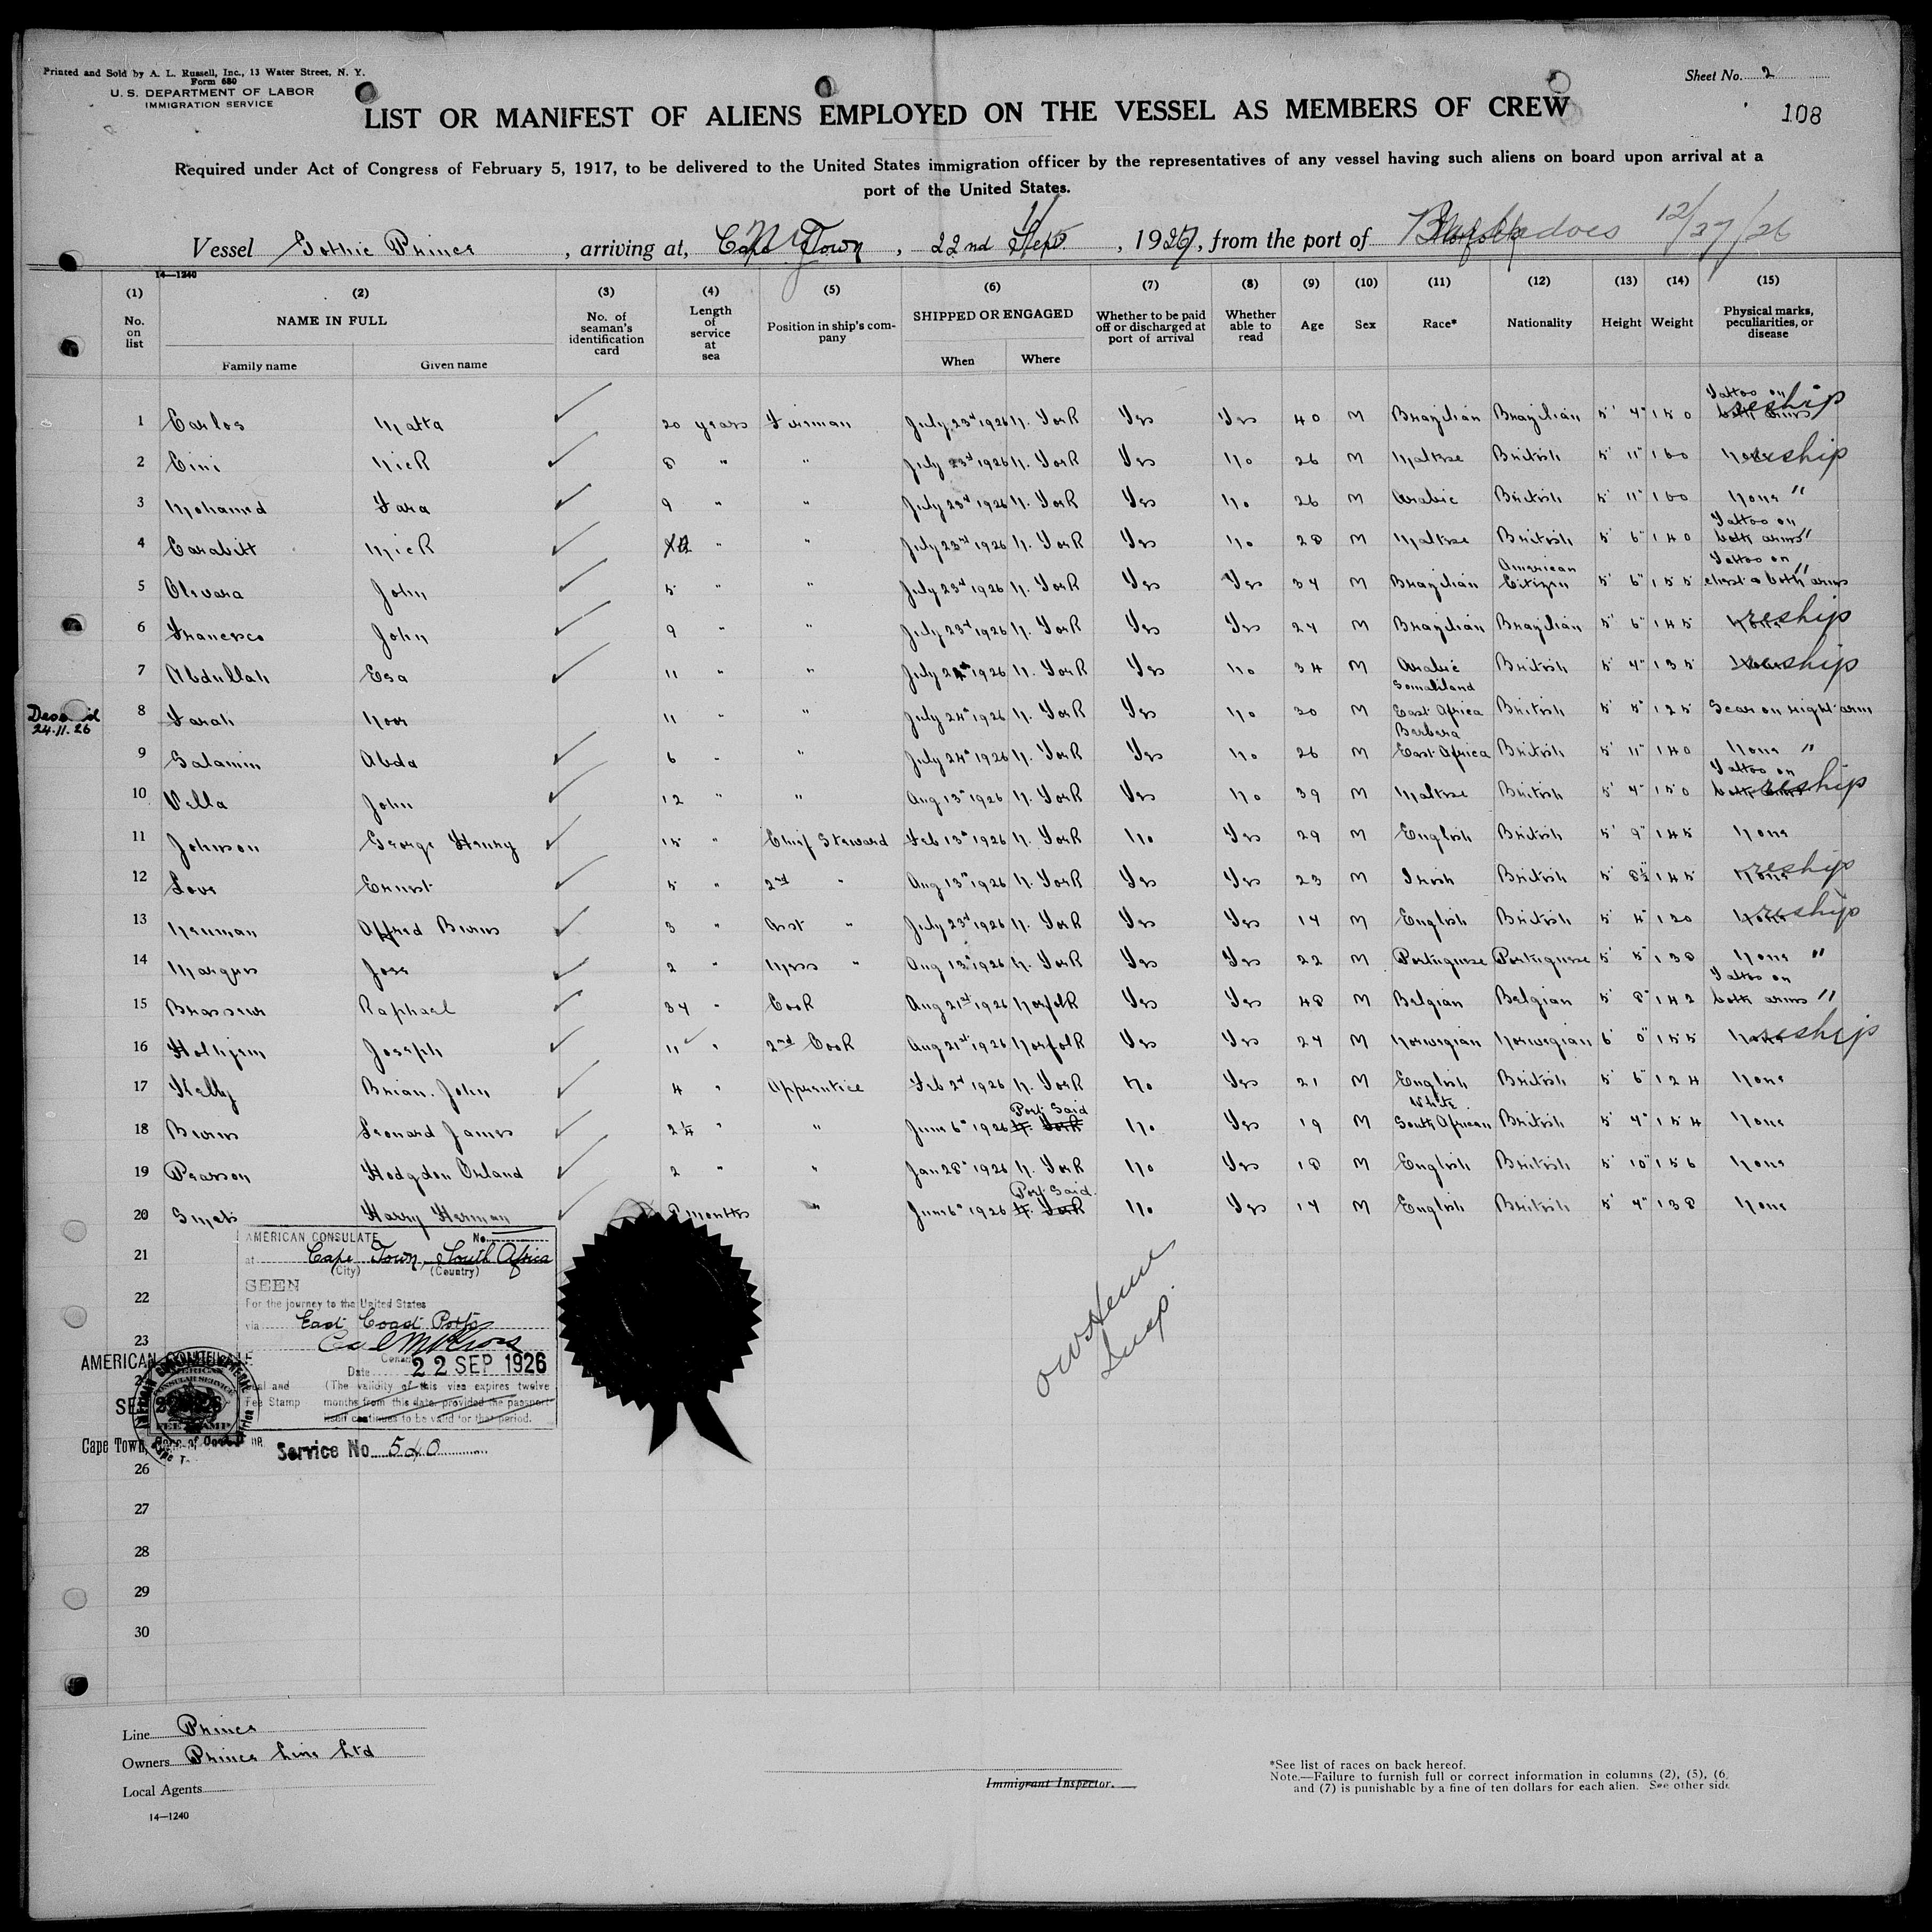 Printed and Sold by A. L. Russell, Inc., 13 Water Street, N. Y.
Form 680
U. S. DEPARTMENT OF LABOR
IMMIGRATION SERVICE
Sheet No. 2
108
LIST OR MANIFEST OF ALIENS EMPLOYED ON THE VESSEL AS MEMBERS OF CREW
Required under Act of Congress of February 5, 1917, to be delivered to the United States immigration officer by the representatives of any vessel having such aliens on board upon arrival at a
port of the United States.
Vessel Gothic Prince, arriving at, Cape Town, 22nd Sept, 1926, from the port of Barbadoes 12/27/26
14—1240
(1) (2) (3) (4) (5) (6) (7) (8) (9) (10) (11) (12) (13) (14) (15)
No. on list NAME IN FULL Family name Given name No. of seaman's identification card Length of service at sea Position in ship's company SHIPPED OR ENGAGED When Where Whether to be paid off or discharged at port of arrival Whether able to read Age Sex Race* Nationality Height Weight Physical marks, peculiarities, or disease
1 Carlos Matta 20 years Fireman July 23rd 1926 N. York Yes Yes 40 M Brazilian Brazilian 5' 4" 150 Tattoo on both arms reship
2 Cini Nick 8 " " July 23rd 1926 N. York Yes No 26 M Maltese British 5' 11" 160 None reship
3 Mohamed Fara 9 " " July 23rd 1926 N. York Yes No 26 M Arabic British 5' 11" 160 None "
4 Carabitt Nick " " July 23rd 1926 N. York Yes No 28 M Maltese British 5' 6" 140 Tattoo on both arms "
5 Olevara John 5 " " July 23rd 1926 N. York Yes Yes 34 M Brazilian American Citizen 5' 6" 155 Tattoo on chest & both arms "
6 Francesco John 9 " " July 23rd 1926 N. York Yes Yes 24 M Brazilian Brazilian 5' 6" 145 None reship
7 Abdullah Esa 11 " " July 24th 1926 N. York Yes No 34 M Arabic British 5' 4" 135 None reship
Deserted 24.11.26
8 Farah Noor 11 " " July 24th 1926 N. York Yes No 30 M Somaliland East Africa British 5' 5" 125 Scar on right arm
9 Salamin Abda 6 " " July 24th 1926 N. York Yes No 26 M Berbera East Africa British 5' 11" 140 None "
10 Vella John 12 " " Aug 13th 1926 N. York Yes No 39 M Maltese British 5' 4" 150 Tattoo on both arms reship
11 Johnson George Henry 15 " Chief Steward Feb 13th 1926 N. York No Yes 29 M English British 5' 9" 145 None
12 Love Ernest 5 " 2nd " Aug 13th 1926 N. York Yes Yes 23 M Irish British 5' 8½ 145 None reship
13 Newman Alfred Burns 3 " Asst " July 23rd 1926 N. York Yes Yes 17 M English British 5' 4" 120 None reship
14 Marques Jose 2 " Mess " Aug 13th 1926 N. York Yes Yes 22 M Portuguese Portuguese 5' 5" 138 None "
15 Brasseur Raphael 34 " Cook Aug 21st 1926 Norfolk Yes Yes 48 M Belgian Belgian 5' 8" 142 Tattoo on both arms "
16 Joseph 11 " 2nd Cook Aug 21st 1926 Norfolk Yes Yes 24 M Norwegian Norwegian 6' 0" 155 None reship
17 Kelly Brian John 4 " Apprentice Feb 2nd 1926 N. York No Yes 21 M English British 5' 6" 124 None
18 Burns Leonard James 2¼ " " June 6th 1926 Port Said N. York No Yes 19 M White South African British 5' 4" 154 None
19 Pearson Hodgdon Orland 2 " " Jan 28th 1926 N. York No Yes 18 M English British 5' 10" 156 None
20 Harry Herman months " June 6th 1926 Port Said N. York No Yes 17 M English British 5' 4" 138 None
21
22
23
26
27
28
29
30
AMERICAN CONSULATE No.
at Cape Town, South Africa
(City) (Country)
SEEN
For the journey to the United States
via East Coast Ports
Date 22 SEP 1926
(The validity of this visa expires twelve
months from this date, provided the passport
itself continues to be valid for that period.
Fee Stamp
AMERICAN CONSULATE
Cape Town
Service No 540
Insp.
Line Prince
Owners Prince Line Ltd
Local Agents
14—1240
Immigrant Inspector.
*See list of races on back hereof.
Note.—Failure to furnish full or correct information in columns (2), (5), (6)
and (7) is punishable by a fine of ten dollars for each alien. See other side